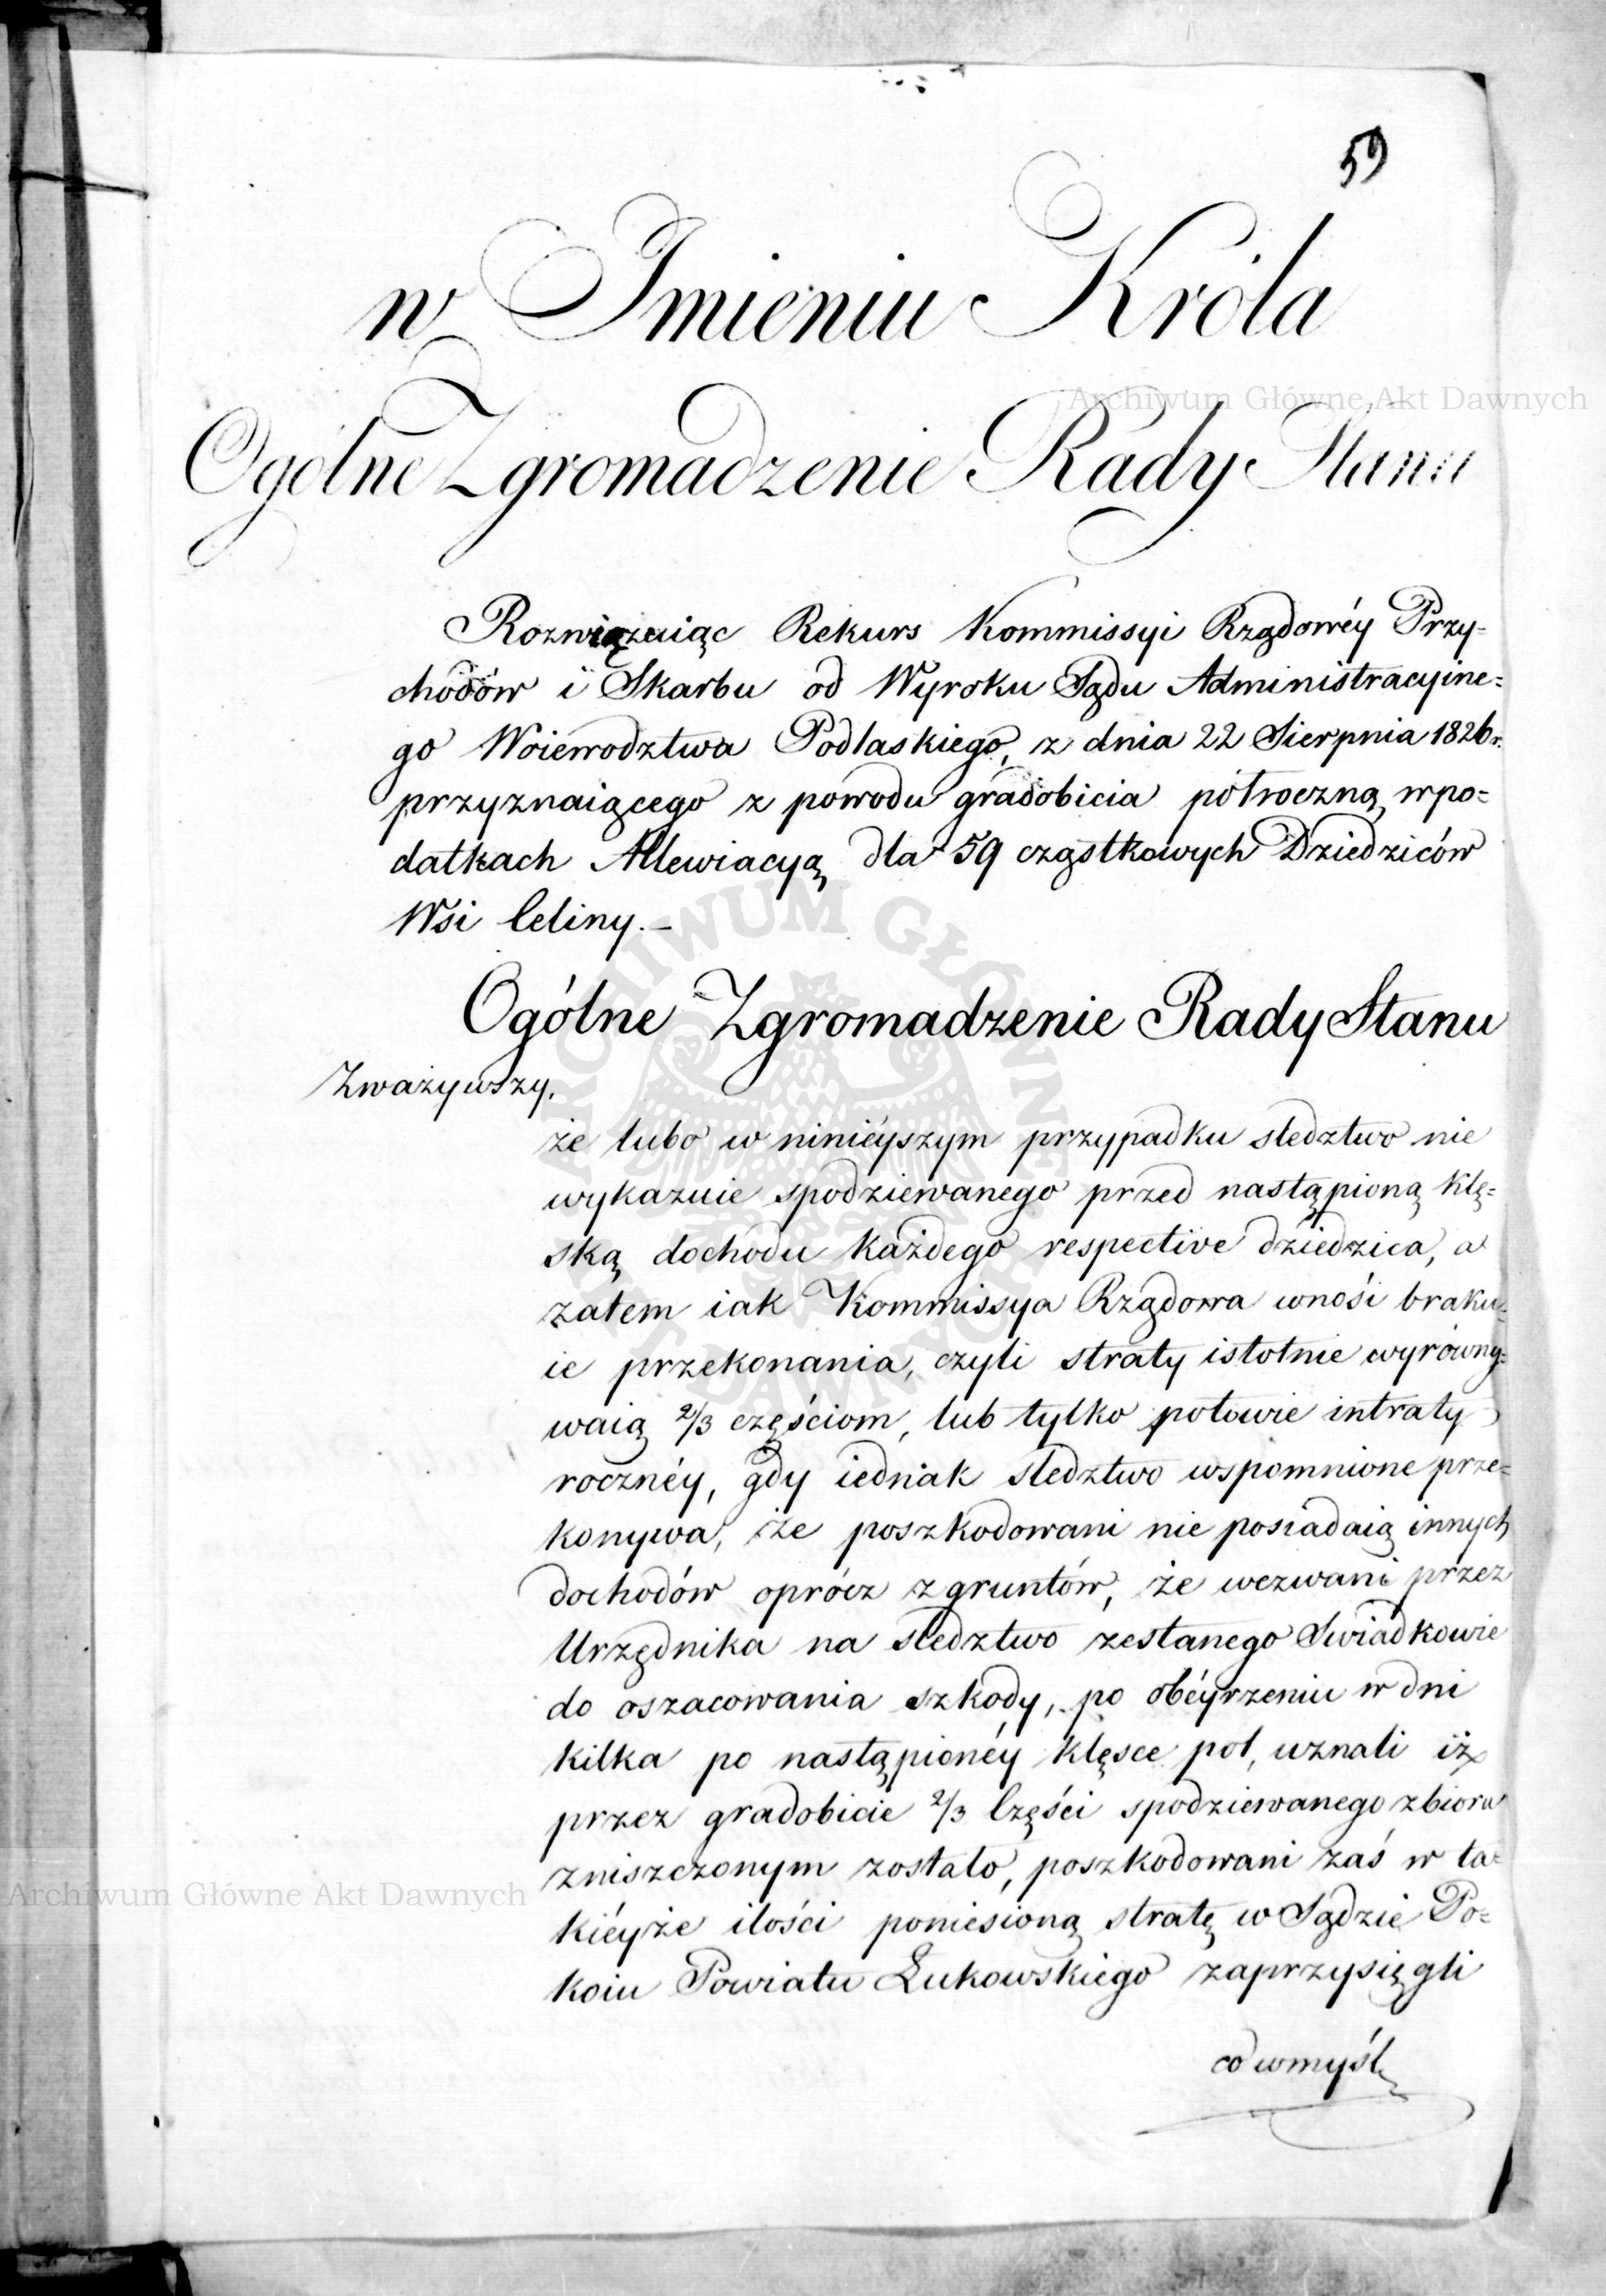 59
w Imieniu Króla
Ogólne Zgromadzenie Rady Stanu
Rozwiązuiąc Rekurs Kommissyi Rządowéy Przy=
chodów i Skarbu od Wyroku Sądu Administracyine=
go Woiewodztwa Podlaskiego, z dnia 22 Sierpnia 1826 r.
przyznaiącego z powodu gradobicia półroczną w po=
datkach Allewiacyą dla 59 cząstkowych Dziedziców
Wsi Celiny.—
Ogólne Zgromadzenie Rady Stanu
Zważywszy,
że lubo w ninieyszym przypadku sledztwo nie
wykazuie spodziewanego przed nastąpioną klę=
ską dochodu każdego respective dziedzica, a
zatem iak Kommissya Rządowa wnośi braku=
ie przekonania, czyli straty istotnie wyrówny=
waią 2/3 częściom, lub tylko połowie intraty
rocznéy, gdy iednak sledztwo wspomnione prze=
konywa, że poszkodowani nie posiadaią innych
dochodów oprócz z gruntów, że wezwani przez
Urzędnika na sledztwo zesłanego Swiadkowie
do oszacowania szkody, po obéyrzeniu w dni
kilka po nastąpionéy klęsce pol, uznali iż
przez gradobicie 2/3 Części spodziewanego zbioru
zniszczonym zostało, poszkodowani zaś w ta=
kiéyże ilości poniesioną stratę w Sądzie Po=
koiu Powiatu Łukowskiego zaprzysięgli
co w myśl
Archiwum Główne Akt Dawnych
Archiwum Główne Akt Dawnych
ARCHIWUM GŁÓWNE AKT DAWNYCH